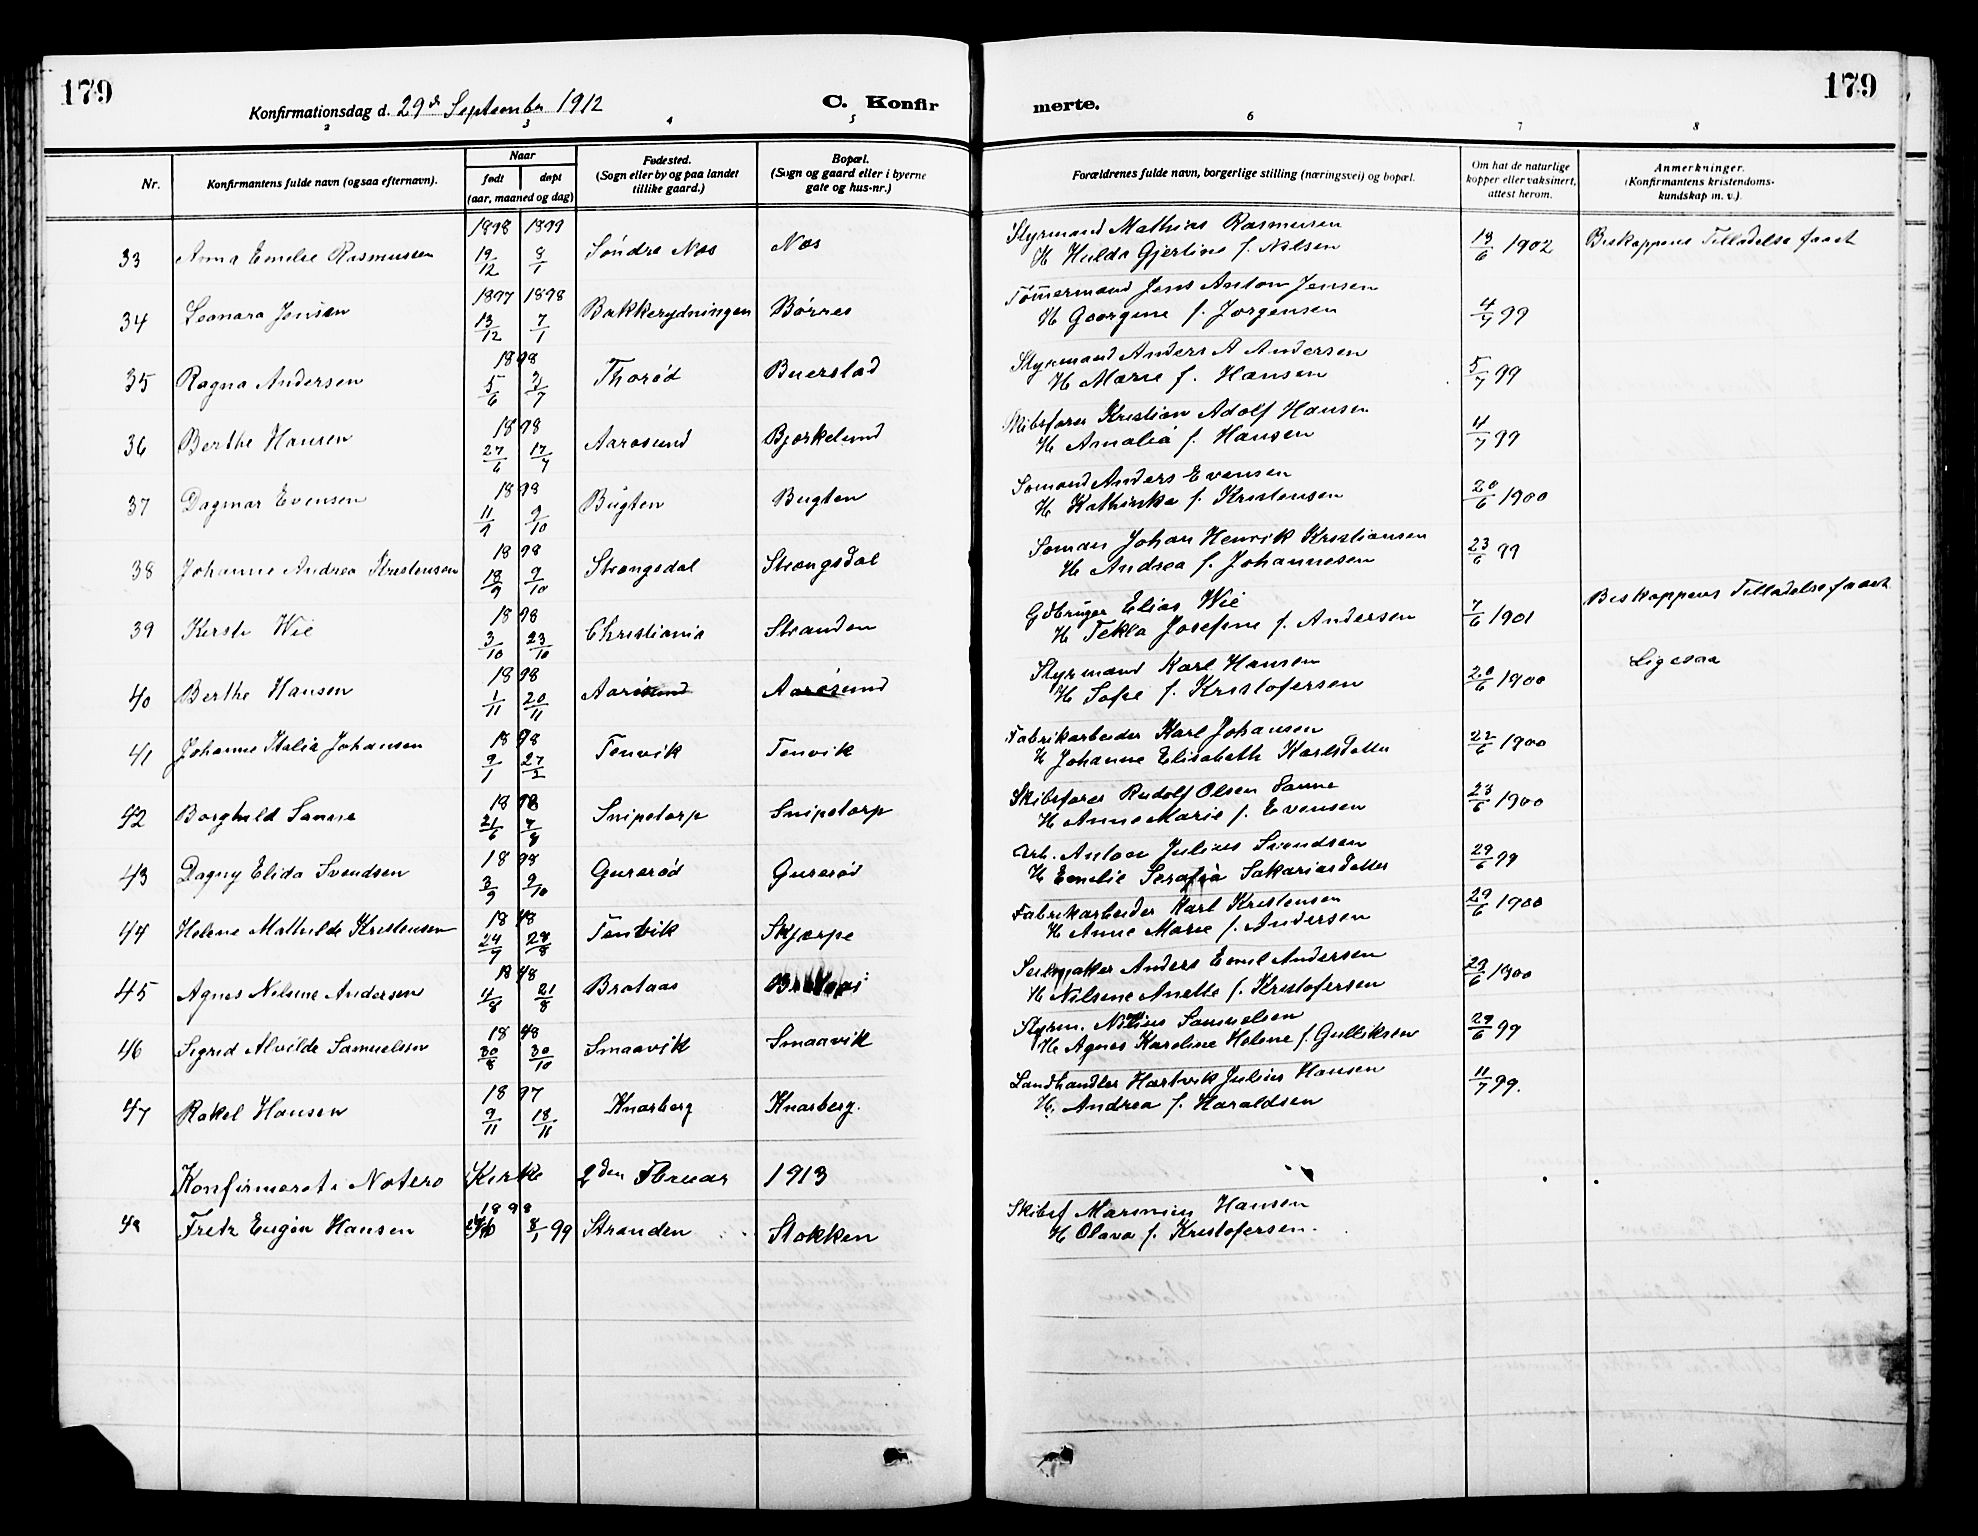 179
Konfirmationsdag d. 29de September 1912
C. Konfir
merte.
179
2 3 4 5 6 7 8
Nr.
Konfirmantens fulde navn (ogsaa efternavn).
Naar
født
døpt
(aar, maaned og dag)
Fødested.
(Sogn eller by og paa landet
tillike gaard.)
Bopæl.
(Sogn og gaard eller i byerne
gate og hus-nr.)
Forældrenes fulde navn, borgerlige stilling (næringsvei) og bopæl.
Om hat de naturlige
kopper eller vaksinert,
attest herom.
Anmerkninger.
(Konfirmantens kristendoms-
kundskap m. v.).
1898 1899
33 Anna Emelie Rasmussen 19/12 8/1 Søndre Nes Nes
Styrmand Mathias Rasmusen
H Hulda Gjertine f. Nilsen
13/6 1902 Biskoppens Tilladelse faaet
1897 1898
34 Leonara Jensen 13/12 7/1 Bakkerydningen Børres
Tømmermand Jens Anton Jensen
H Georgine f. Jorgensen
4/7 99
1898
35 Ragna Andersen 5/6 3/7 Thorød Buerstad
Styrmand Anders A Andersen
H Marie f. Hansen
5/7 99
1898
36 Berthe Hansen 27/6 17/7 Aarosund Bjorkelund
Skibsfører Kristian Adolf Hansen
H Amalia f. Hansen
4/7 99
1898
37 Dagmar Evensen 11/9 9/10 Bugten Bugten
Somand Anders Evensen
H Kathinka f. Kristensen
20/6 1900
1898
38 Johanne Andrea Kristensen 18/9 9/10 Strengsdal Strengsdal
Soman Johan Henrik Kristiansen
H Andrea f. Johannesen
23/6 99
1898
39 Kirsti Wie 3/10 23/10 Christiania Stranden
Gdbruger Elias Wie
H Tekla Josefine f. Andersen
7/6 1901 Biskoppens Tilladelse faaet
1898
40 Berthe Hansen 1/11 20/11 Aarosund Aarosund
Styrmand Karl Hansen
H Sofie f. Kristofersen
20/6 1900 Ligesaa
1898
41 Johanne Italia Johansen 9/1 27/2 Tenvik Tenvik
Fabrikarbeider Karl Johansen
H Johanne Elisabeth Karlsdatter
22/6 1900
1898
42 Borghild Sanne 21/6 7/8 Snipetorp Snipetorp
Skibsfører Rudolf Olsen Sanne
H Anne Marie f. Evensen
23/6 1900
1898
43 Dagny Elida Svendsen 3/9 9/10 Gurerød Gurerød
Arb. Anton Julius Svendsen
H Emelie Serafia Sakariasdatter
29/6 99
1898
44 Helene Mathilde Kristensen 24/7 28/8 Tenvik Skjerpe
Fabrikarbeider Karl Kristensen
H Anne Marie f. Andersen
29/6 1900
1898
45 Agnes Nilsine Andersen 4/8 21/8 Brataas
Seilmaker Anders Emil Andersen
H Nilsine Anette f. Kristofersen
29/6 1900
1898
46 Sigrid Alvilde Samuelsen 30/8 30/10 Smaavik Smaavik
Styrm. Samuelsen
H Agnes Karoline Helene f. Gulliksen
29/6 99
1897
47 Rakel Hansen 9/11 18/11 Knarberg Knarberg.
Landhandler Hartvik Julius Hansen
H. Andrea f. Haraldsen
11/7 99.
Konfirmeret i Notero Kirke 2den Februar 1913
1898
48 Fritz Eugen Hansen 8/1 99 Stranden Stokken
Skibsf Marinius Hansen
H Olava f. Kristofersen.